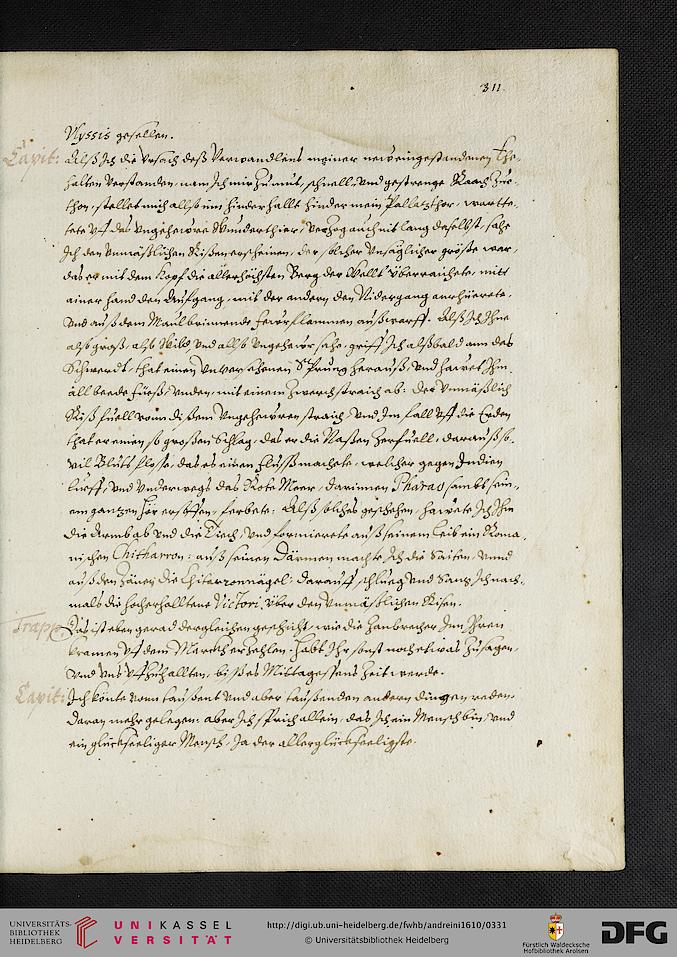 311.
Vlyssis gesellen.
Capit: Alß Ich die Vrsach deß Verwandlens meiner new eingestandenen Ehe„
halten Verstanden, nam Ich mir Zu mut, schnell, vnd gestrenge Raach Zue
thon, stellet mich allso im hinderhallt hinder mein Pallatzthor, wartte„
tete vf das Vngehewre Wunderthier, Verzog auch nit lang daselbst, sahe
Ich den Vnmäßlichen Rißen erscheinen, der solcher Vnsäglicher größe war,
das er mit dem Kopf die allerhöchsten Berg der Wellt überraichete, mitt
ainer hand den Aufgang, mit der andern den Nidergang anrhüerete,
vnd auß dem Maul brinnende fewrflammen außwarff. Alß Ich Ihne
also groß, also wild vnd allso Vngehewr sahe, griff Ich alßbald ann das
Schwerdt, that einen schönen Sprung herauß, vnd hawet Ihm
all beede füeß, vnden, mit einem Zwerchstraich ab: der Vnmäßlich
Riß fuell von dißem Vngehewren straich, vnd Im fall vff die Erden
that er einen so großen Schlag, das er die Zerfuell, darauß so„
vil Bluts flosse, das es einen flusß machete, welcher gegen Indien
lüeff, vnd Vnderwegs das Rote Meer, darinnen Pharao sambt sein„
em gantzen hör ersoffen, ferbete: Alß solches geschehen, hawete Ich Ihm
die Armb ab vnd die Diech, vnd formierete auß seinem leib ein Roma„
nischen Chitharron: auß seinen Därmen machte Ich die Saiten, vnnd
auß den Zänen die Chitarronnägel: darauf schlueg vnd sang Ich nach„
mals die hocherhalltene Victori, über den Vnmäßlichen Risen.
Trapp: Das ist eben gerad dergleichen geschicht, wie die Zanbrecher Inn Ihren
kramen vf dem Marckh erzehlen. habt Ihr sonst noch etwas Zusagen,
vnd vns vfZuhallten, biß es Mittagessens Zeit werde.
Capit: Ich könte vonn taußent vnd aber taußenden andern dingen reden,
daran mehr gelegen: aber Ich sprich allein, das Ich ein Mensch bin, vnd
ein glückseeliger Mensch, Ja der allerglückseeligste.
UNIVERSITÄTS-
BIBLIOTHEK
HEIDELBERG
UNIKASSEL
VERSITÄT
http://digi.ub.uni-heidelberg.de/fwhb/andreini1610/0331
© Universitätsbibliothek Heidelberg
Fürstlich Waldecksche
Hofbibliothek Arolsen
DFG